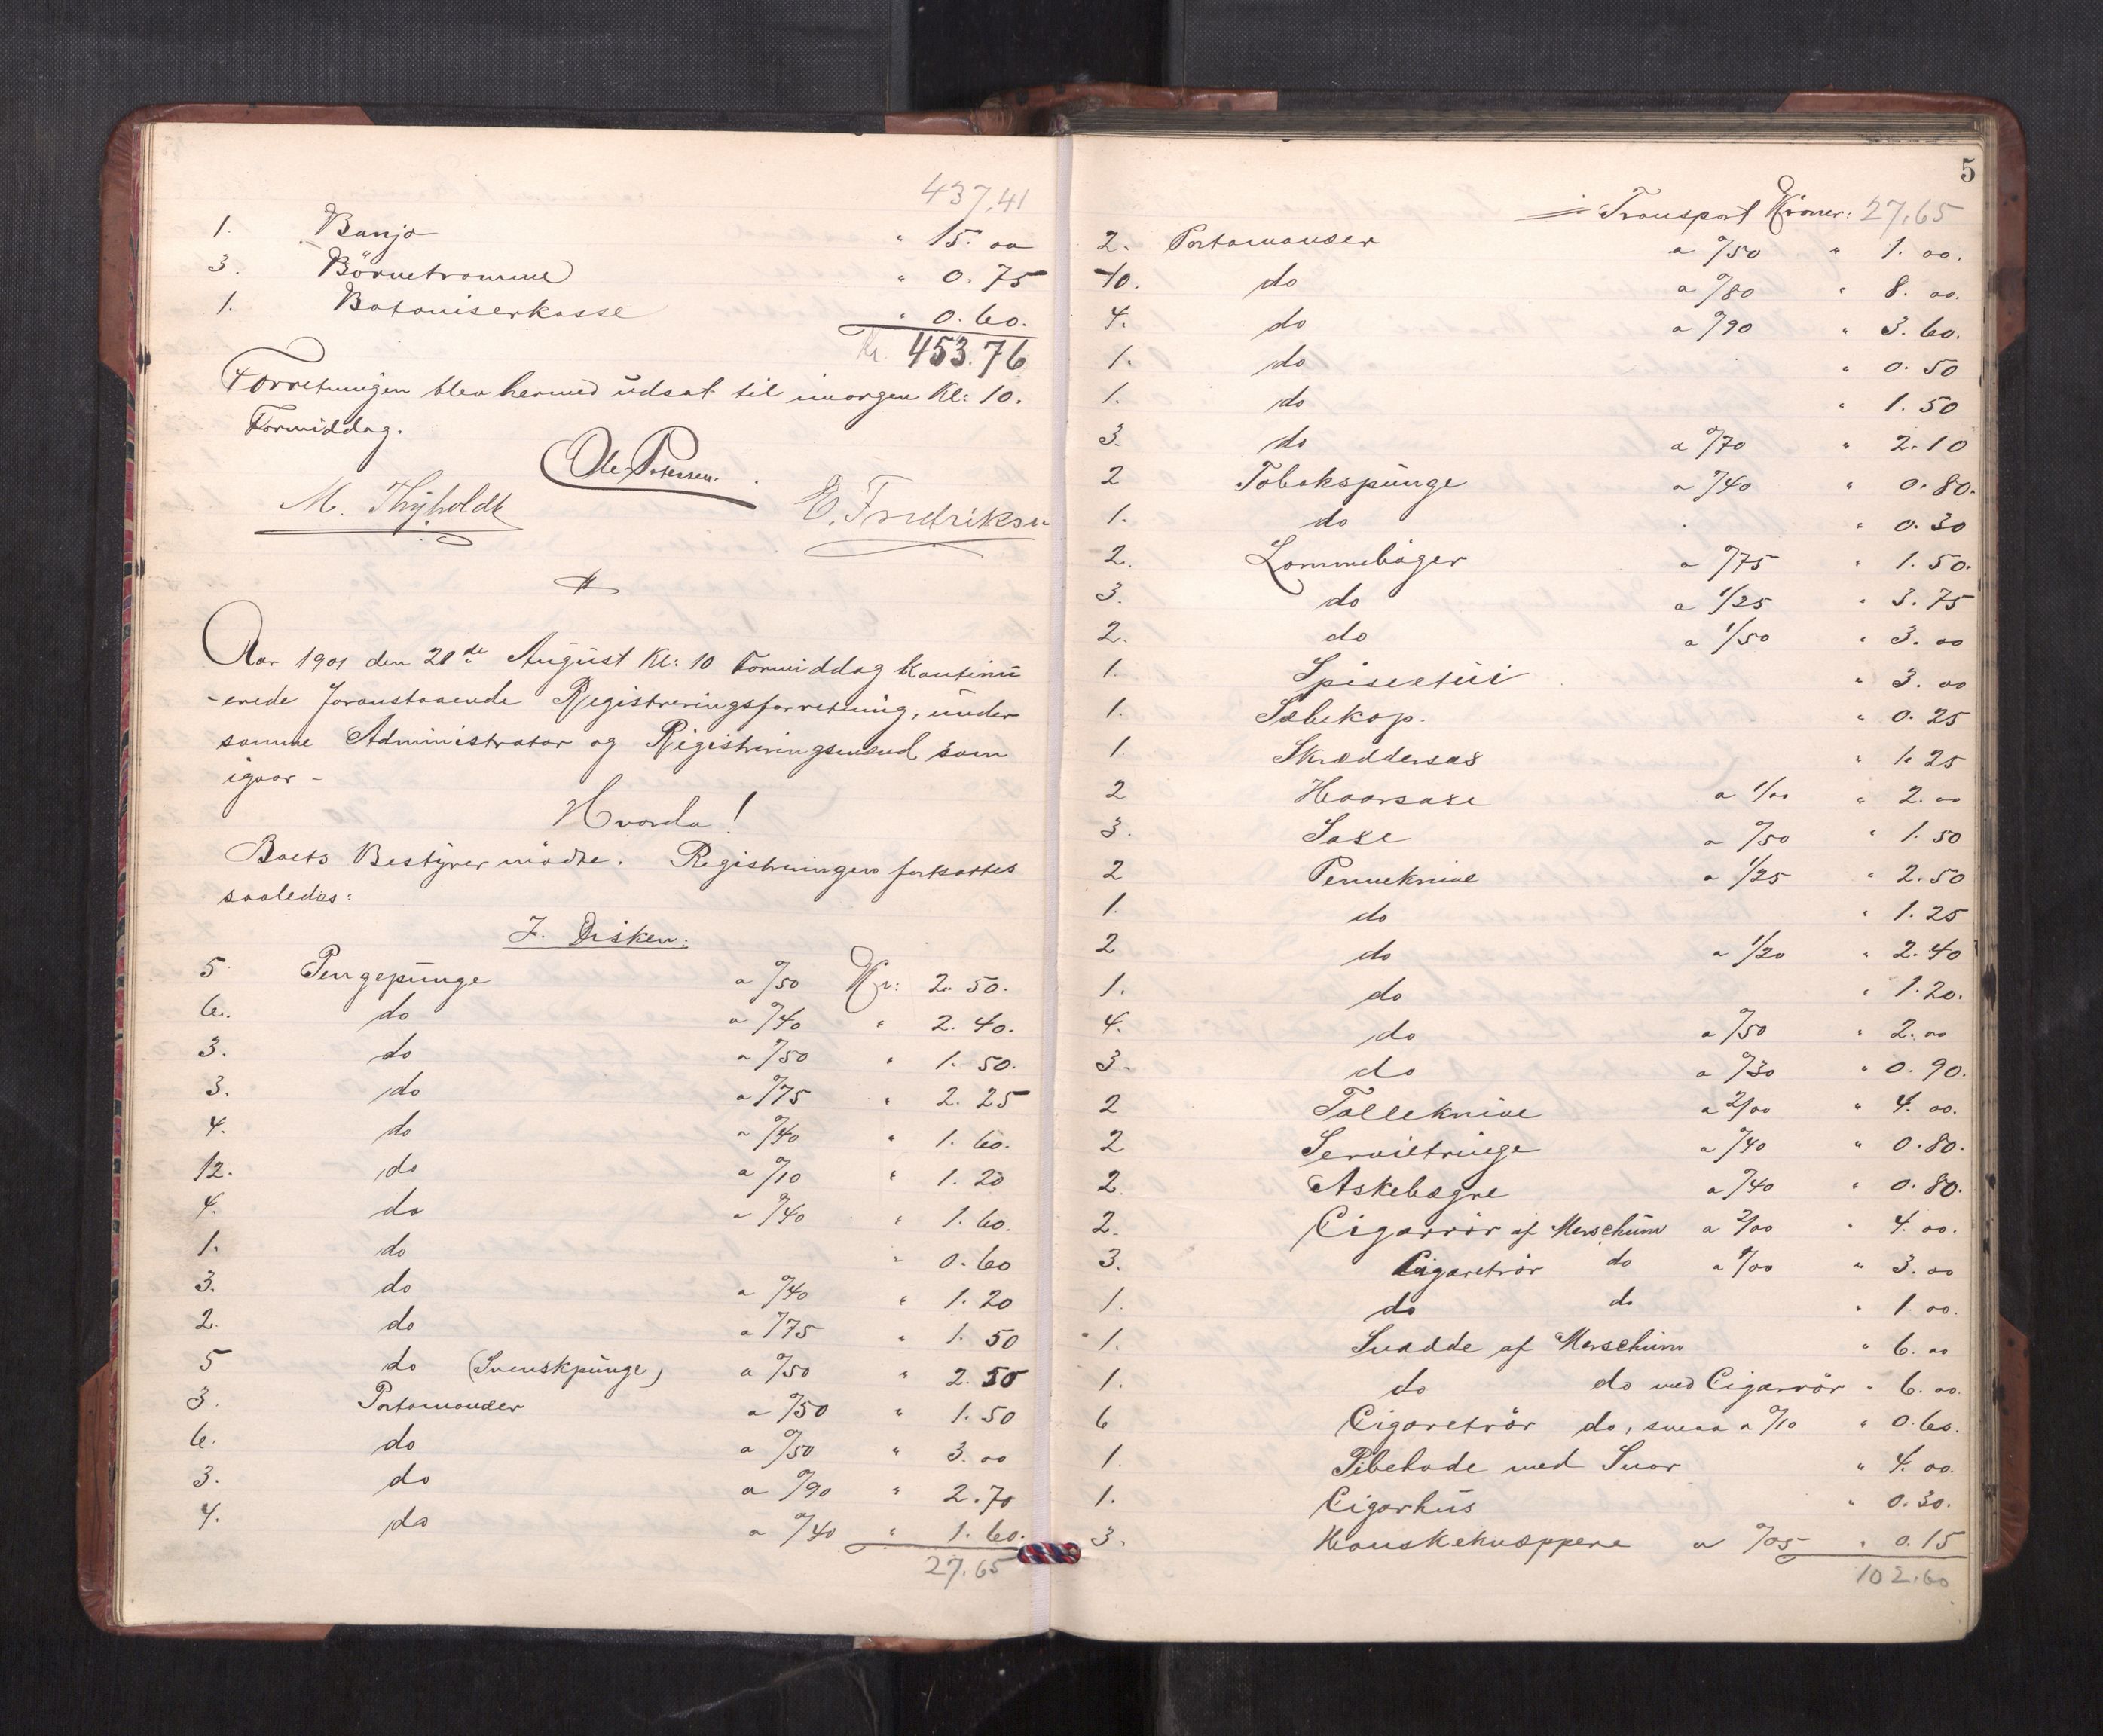 437,41
1. Banjo " 15. 00
3. Börnetromme " 0. 75
1. Botaniserkasse " 0. 60.
Kr. 453.76
Forretningen blev hermed udsat til imorgen Kl: 10.
Formiddag.
Ole Petersen.
M. Thyholdt E. Fredriksen
Aar 1901 den 28de August Kl: 10 Formiddag kontinu
-erede foranstaaende Registreringsforretning, under
samme Administrator og Registreringsmænd som
igaar -
Hvorda!
Boets Bestyrer mödte. Registreringen fortsattes
saaledes:
I. Disken:
5 Pengepunge a 0/50 Kr: 2. 50.
6. do a 0/40 " 2. 40.
3. do a 0/50 " 1. 50.
3. do a 0/75 " 2. 25
4. do a 0/40 " 1. 60.
12. do a 0/10 " 1. 20
4. do a 0/40 " 1. 60.
1. do " 0. 60
3. do a 0/40 " 1. 20
2. do a 0/75 " 1. 50
5 do (Svenskpunge) a 0/50 " 2. 50
3. Portemonæer a 0/50 " 1. 50
6. do a 0/50 " 3. 00
3. do a 0/90 " 2. 70
4. do a 0/40 " 1. 60.
27.65
5
Transport Kroner: 27,65
2. Portemonæer a 0/50 " 1. 00.
10. do a 0/80 " 8. 00.
4. do a 0/90 " 3. 60.
1. do " 0. 50
1. do " 1. 50
3. do a 0/70 " 2. 10
2 Tobakspunge a 0/40 " 0. 80.
1. do " 0. 30
2. Lommebäger a 0/75 " 1. 50.
3. do a 1/25 " 3. 75
2. do a 1/50 " 3. 00
1. Spiseetui " 3. 00
1. Sæbekop. " 0. 25
1. Skræddersax " 1. 25
2 Haarsaxe a 1/00 " 2. 00
3. Saxe a 0/50 " 1. 50
2 Penneknive a 1/25 " 2. 50
1. do " 1. 25
2 do a 1/20 " 2. 40
1. do " 1. 20.
4. do a 0/50 " 2. 00
3. do a 0/30 " 0. 90.
2 Tolleknive a 2/00 " 4. 00.
2 Servietringe a 0/40 " 0. 80.
2. Askebægre a 0/40 " 0. 80.
2. Cigarrör af Merschum a 2/00 " 4. 00.
3. Cigaretrör do a 1/00 " 3. 00
1. do do " 1. 00.
1. Snadde af Merschum " 6. 00
1. do do med Cigarrör " 6. 00.
6 Cigaretrör do, smaa a 0/10 " 0. 60.
1. Pibehode med Snor " 4. 00.
1. Cigarhus " 0. 30.
3. Hanskeknæppere a 0/05 " 0. 15
102.60